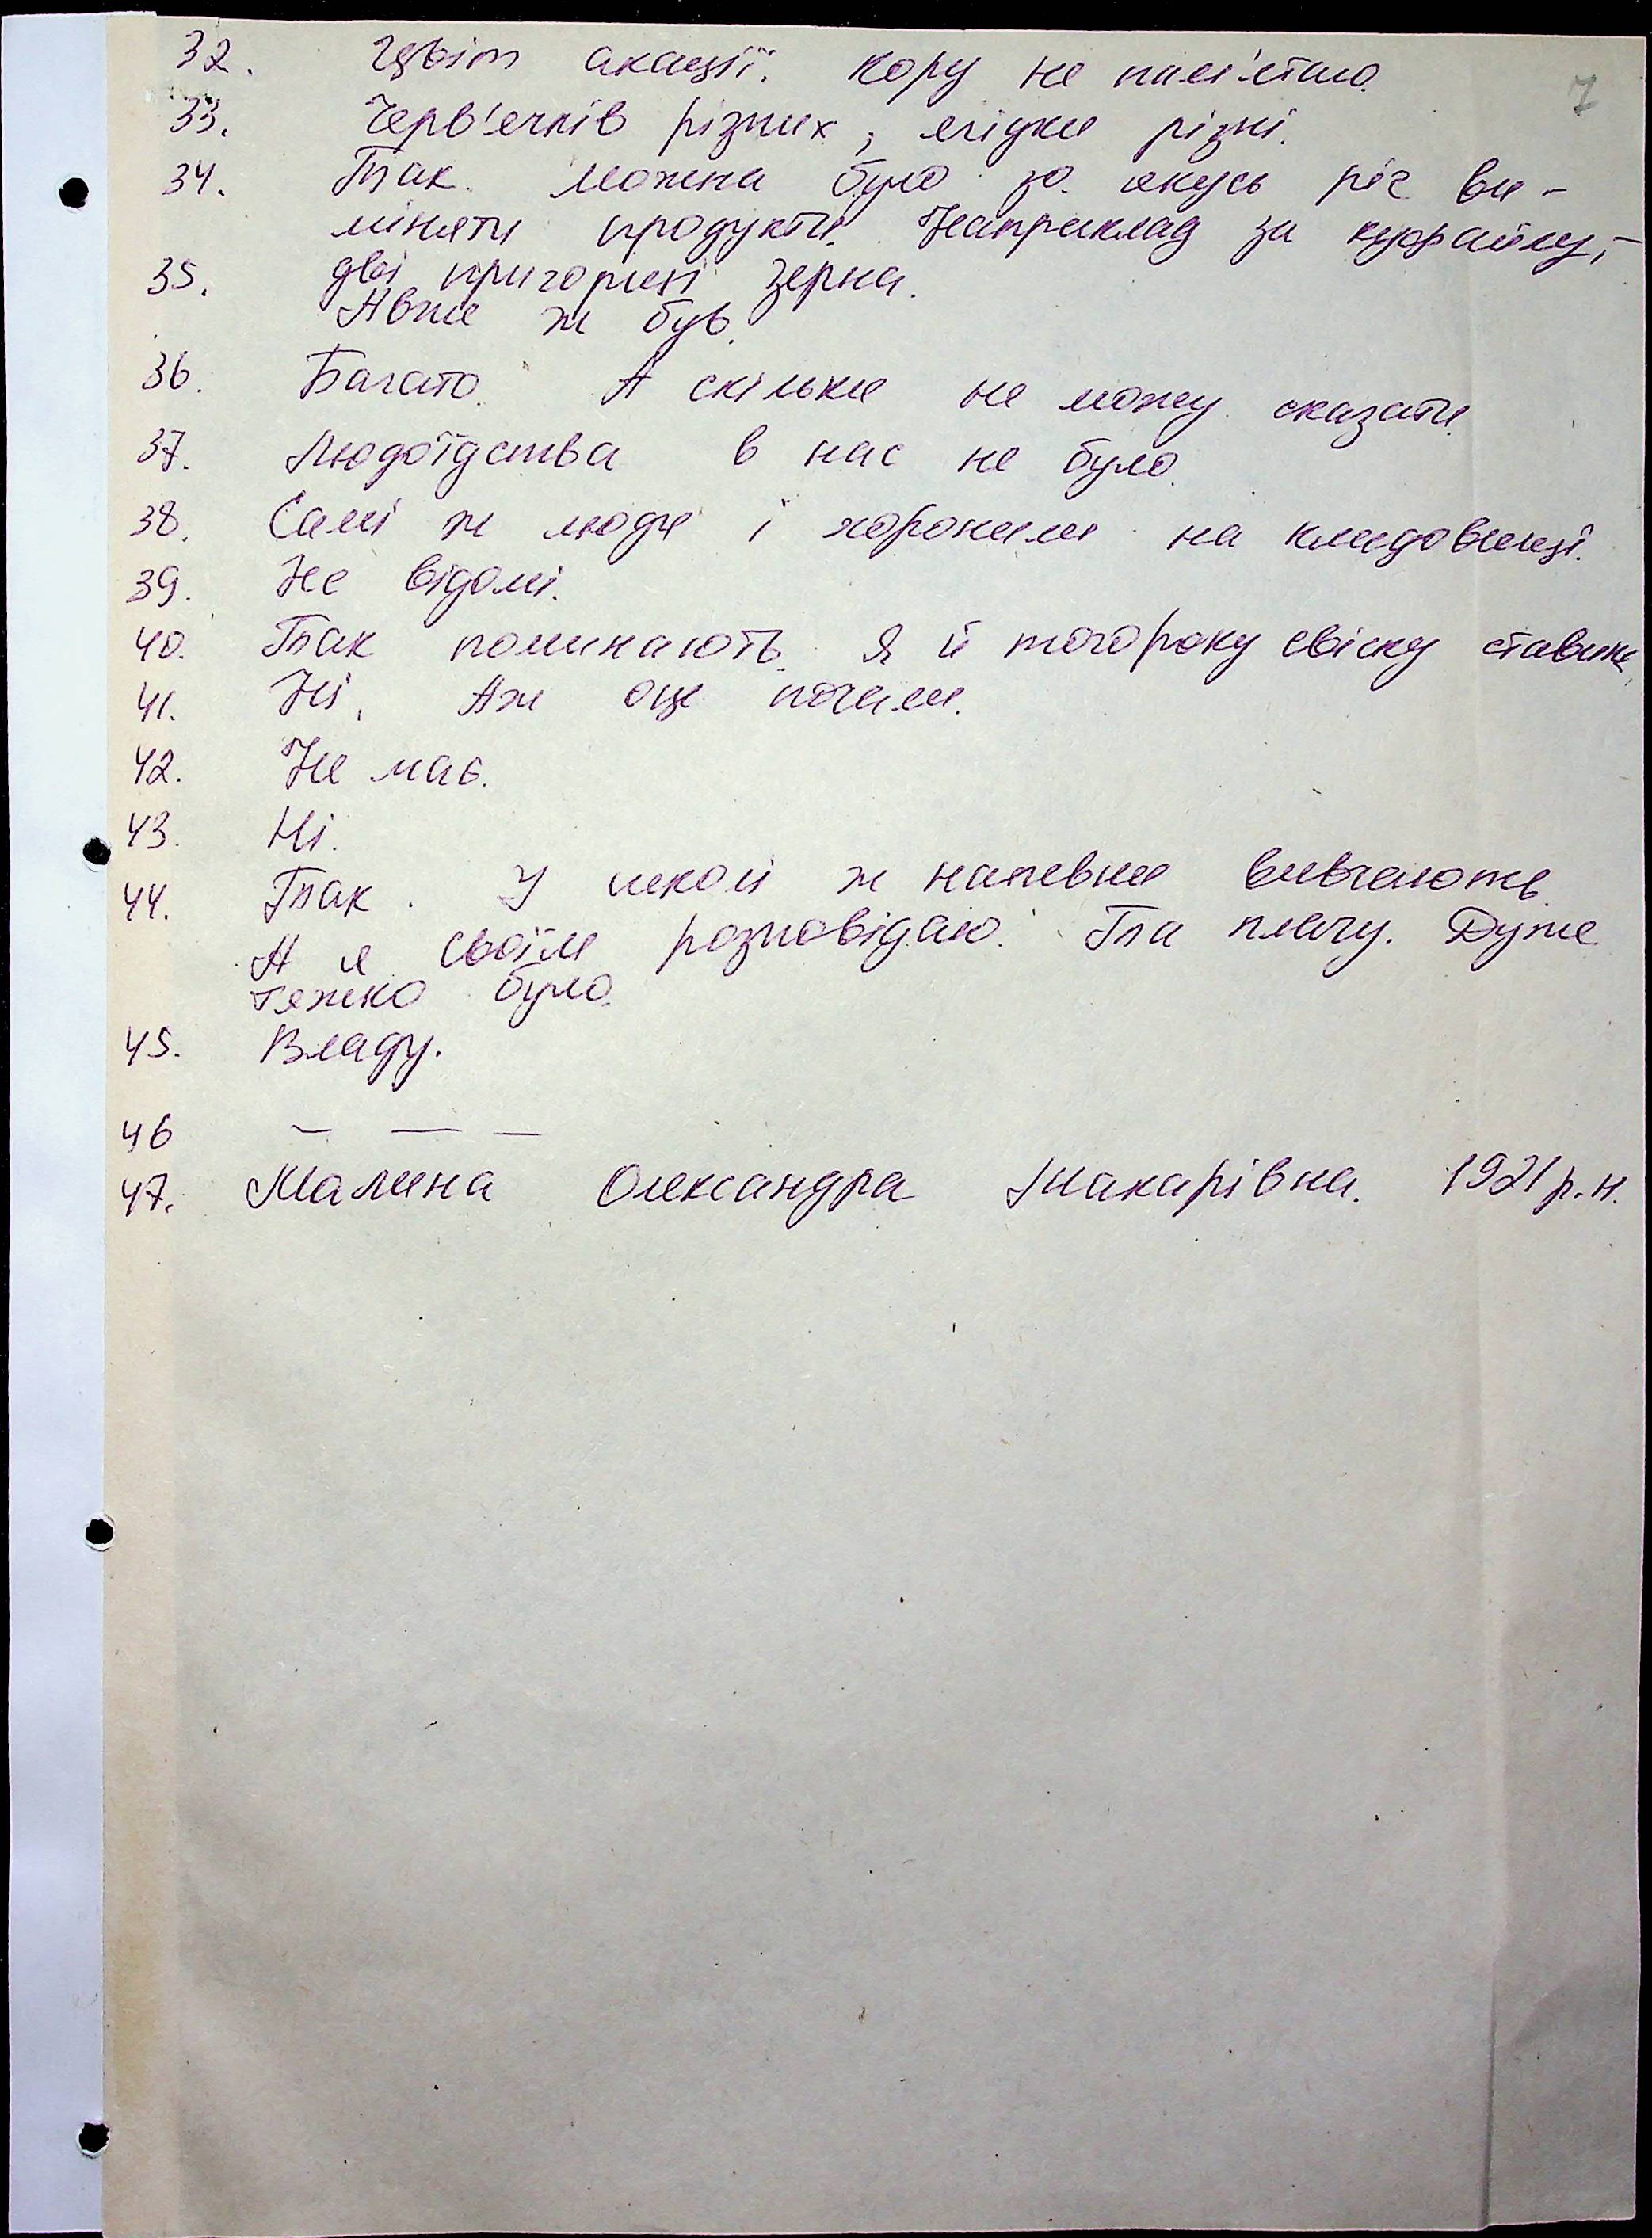 7
32. Цвіт акації. Кору не пам'ятаю.
33. Черв'ячків різних, ягідки різні.
34. Так. Можна було за якусь річ ви-
міняти продукти. Наприклад за куфайку, –
дві пригорщі зерна.
35. Авже ж був.
36. Багато. А скільки не можу сказати.
37. Людоїдства в нас не було.
38. Самі ж люди і хоронили на кладовищі.
39. Не відомі.
40. Так поминають. Я й того року свічку ставила
41. Ні. Аж оце почали.
42. Не має.
43. Ні.
44. Так. У школі ж напевне вивчають.
А я своїм розповідаю. Та плачу. Дуже
тяжко було.
45. Владу.
46 — — —
47. Малина Олександра Макарівна. 1921 р.н.